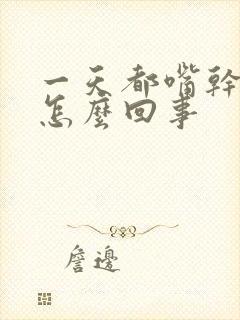 一天都嘴幹
怎麼回事
詹邊